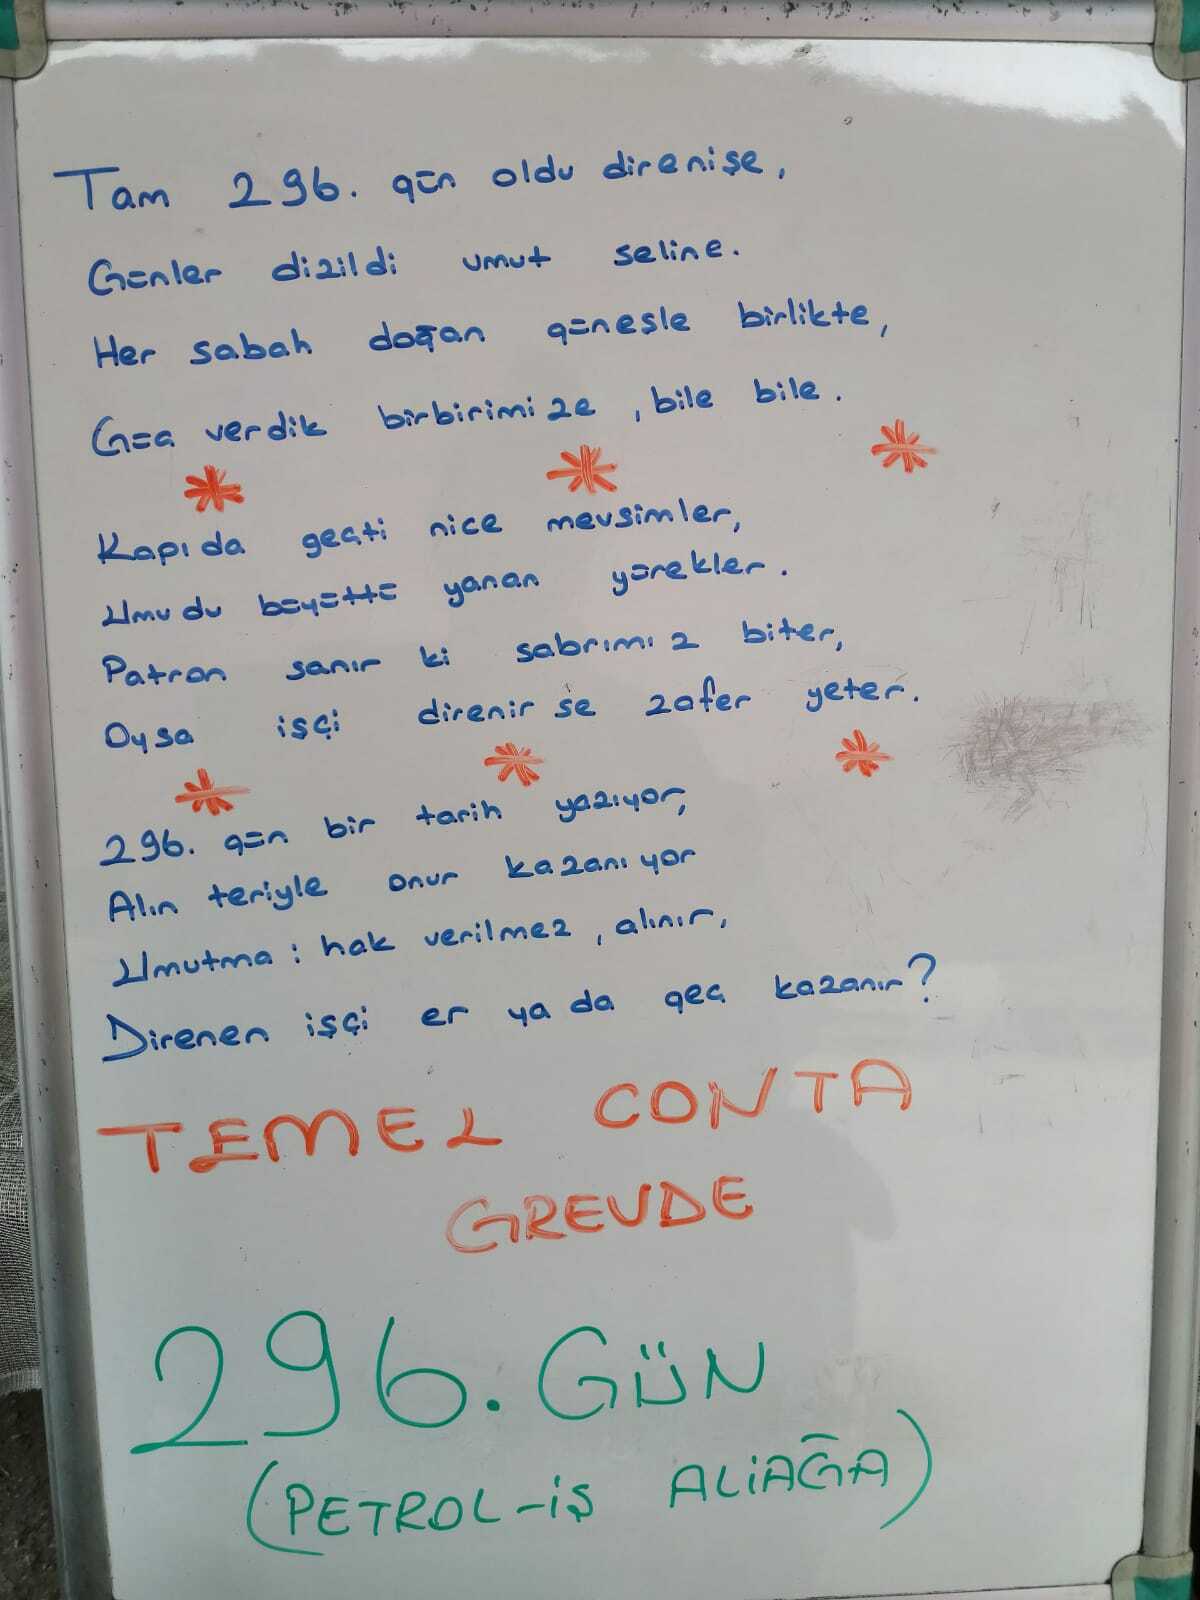 Tam 296. gün oldu direnişe,
Günler dizildi umut seline.
Her sabah doğan güneşle birlikte,
Güç verdik birbirimize, bile bile.
Kapıda geçti nice mevsimler,
Umudu büyüttü yanan yürekler.
Patron sanır ki sabrımız biter,
Oysa işçi direnirse zafer yeter.
296. gün bir tarih yazıyor,
Alın teriyle onur kazanıyor
Umutma: hak verilmez, alınır,
Direnen işçi er ya da geç kazanır?
TEMEL CONTA
GREVDE
296. GÜN
(PETROL-İŞ ALİAĞA)